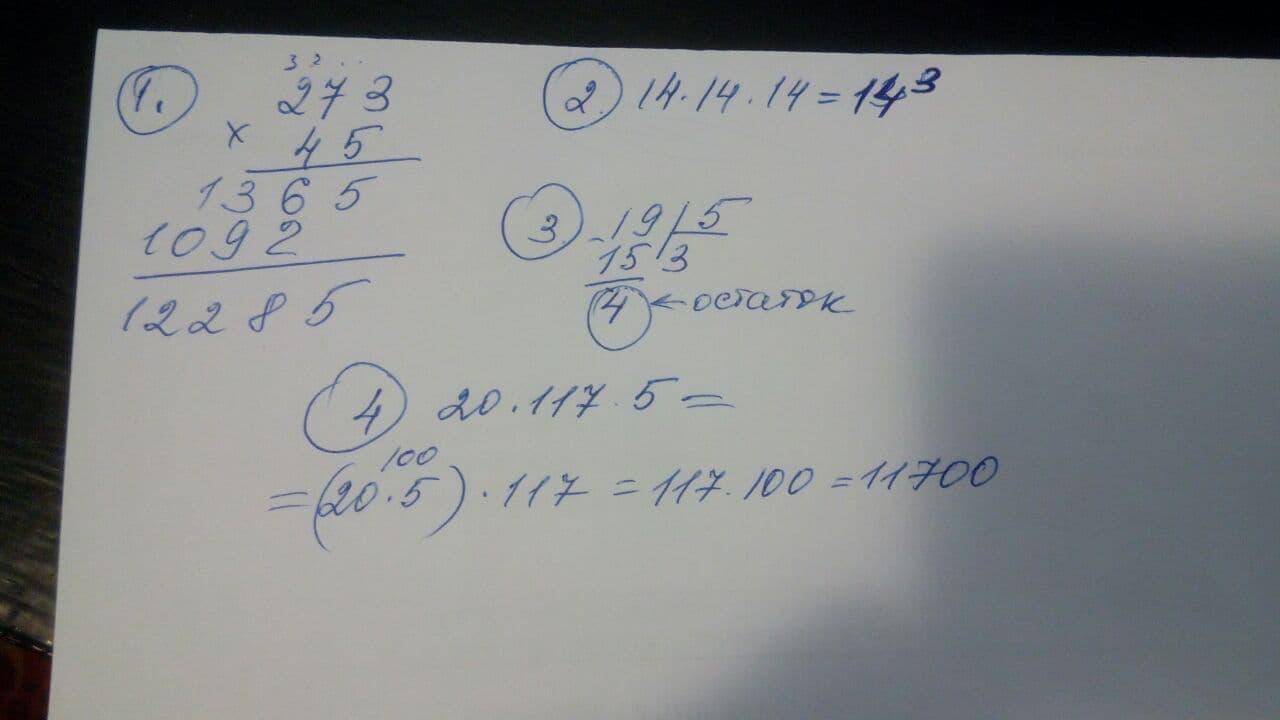 1.
3 2 . .
273
× 45
1365
1092
12285
2. 14·14·14=14³
3 -19 | 5
15 3
4 ← остаток
4 20·117·5=
100
=(20·5)·117=117·100=11700